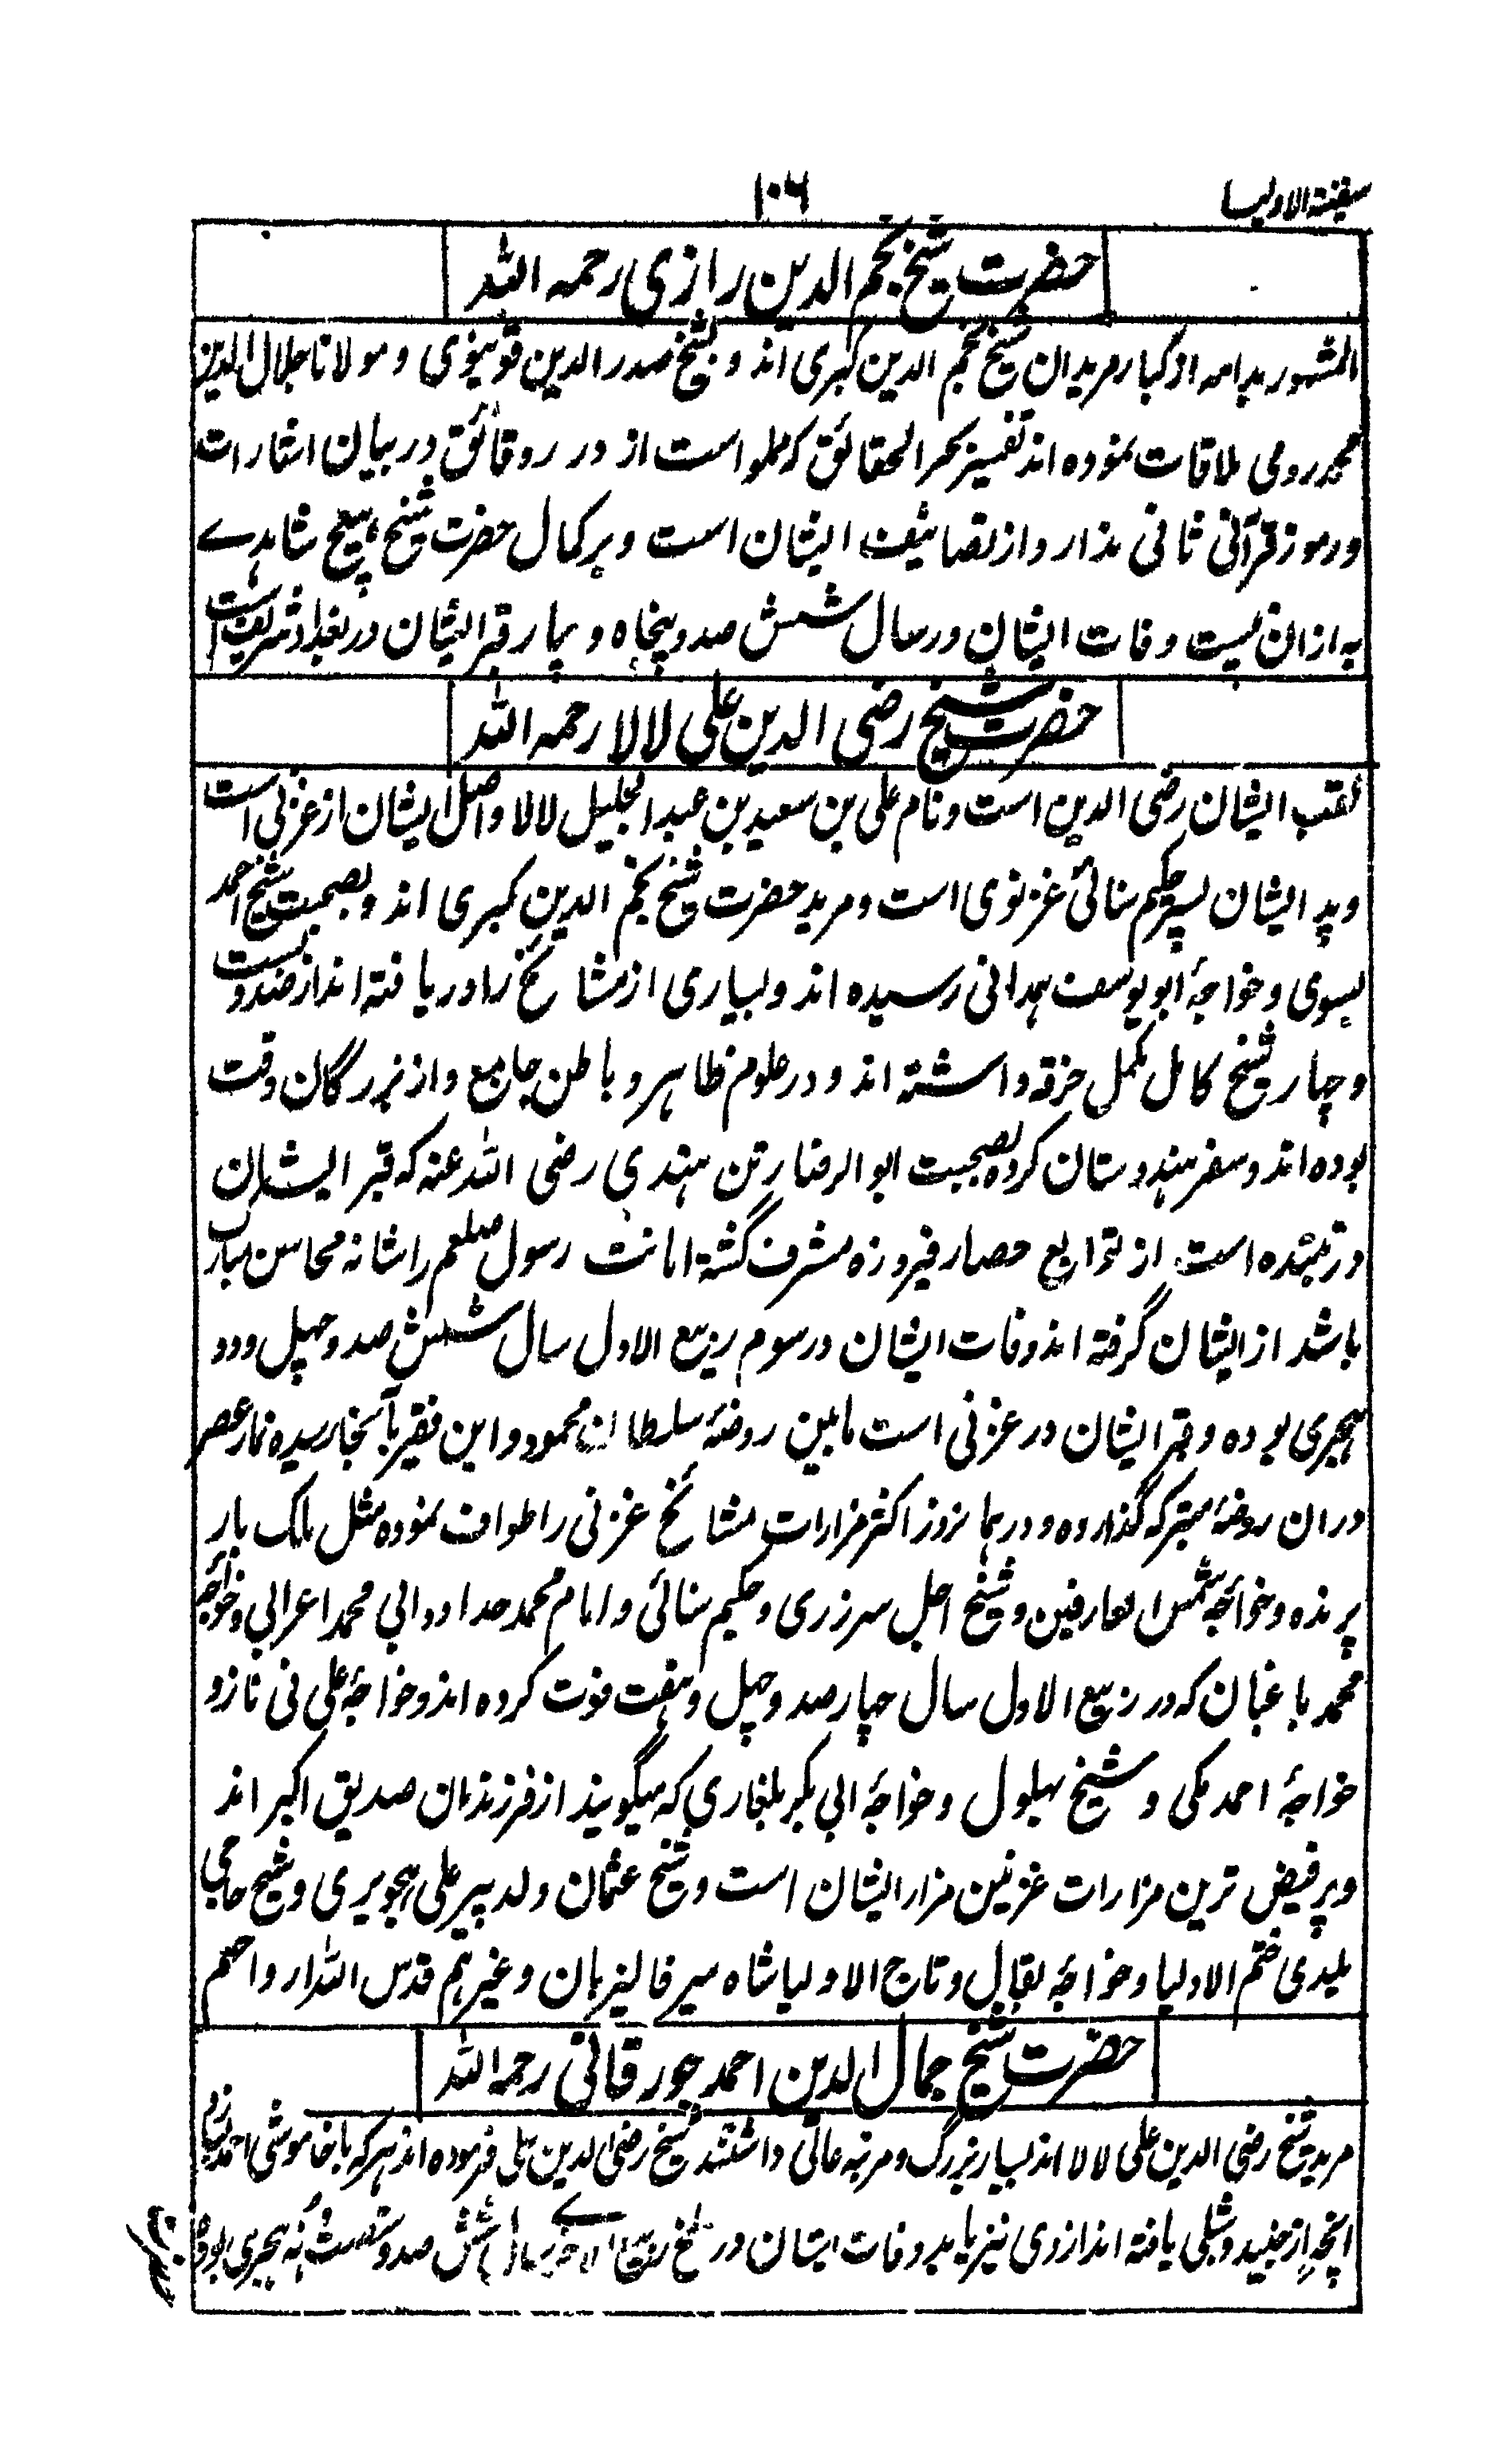 سفینة الاولیا
۱۰۶
حضرت شیخ نجم الدین رازی رحمه الله
المشهور بدایه از کبار مریدان شیخ نجم الدین کبری اند و بشیخ صدر الدین قونیوی و مولانا جلال الدین
محمد رومی ملاقات نموده اند تفسیر بحر الحقائق که مملو است از درر و قائق در بیان اشارات
و رموز قرآنی ثانی ندارد از تصانیف ایشان است و بر کمال حضرت شیخ هیچ شاهدے
به ازان نیست وفات ایشان در سال شش صد و پنجاه و چهار قبر ایشان در بغداد شریف است
حضرت شیخ رضی الدین علی لالا رحمه الله
لقب ایشان رضی الدین است و نام علی بن سعید بن عبد الجلیل لالا و اصل ایشان از غزنی است
و پدر ایشان پسر حکیم سنائی غزنوی است و مرید حضرت شیخ نجم الدین کبری اند و بصحبت شیخ احمد
یسوی و خواجۀ ابو یوسف همدانی رسیده اند و بسیاری از مشائخ را دریافته اند از صد و بست
و چهار شیخ کامل مکمل خرقه داشته اند و در علوم ظاهر و باطن جامع و از بزرگان وقت
بوده اند و سفر هندوستان کرده بصحبت ابو الرضا رتن هندی رضی الله عنه که قبر ایشان
در تبنده است از توابع حصار فیروزه مشرف گشته امانت رسول صلعم را شانه محاسن مبارک
باشد از ایشان گرفته اند وفات ایشان در سوم ربیع الاول سال شش صد و چهل و دو
هجری بوده و قبر ایشان در غزنی است مابین روضۀ سلطان محمود و این فقیر بآنجا رسیده نماز عصر
دران روضۀ متبرکه گذارده و در همان روز اکثر مزارات مشائخ غزنی را طواف نموده مثل ملک یار
پرنده و خواجۀ شمس العارفین و شیخ اجل سرزری و حکیم سنائی و امام محمد حداد و ابی محمد اعرابی و خواجۀ
محمد باغبان که در ربیع الاول سال چهار صد و چهل و هفت فوت کرده اند و خواجۀ علی نی نازو
خواجۀ احمد مکی و شیخ بهلول و خواجۀ ابی بکر بلغاری که میگویند از فرزندان صدیق اکبر اند
و پر فیض ترین مزارات غزنین مزار ایشان است و شیخ عثمان ولد پیر علی هجویری و شیخ حاجی
بلیدی ختم الاولیا و خواجۀ بقال و تاج الاولیا شاه میر فالیزبان و غیرهم قدس الله ارواحهم
حضرت شیخ جمال الدین احمد جورقانی رحمه الله
مرید شیخ رضی الدین علی لالا اند بسیار بزرگ و مرتبه عالی داشتند شیخ رضی الدین علی فرموده اند هر که با خاموشی احمد
انچه از جنید و شبلی یافته اند از وی نیز یابد وفات ایشان در سلخ ربیع الاخرے سال شش صد و شصت و نه هجری بود